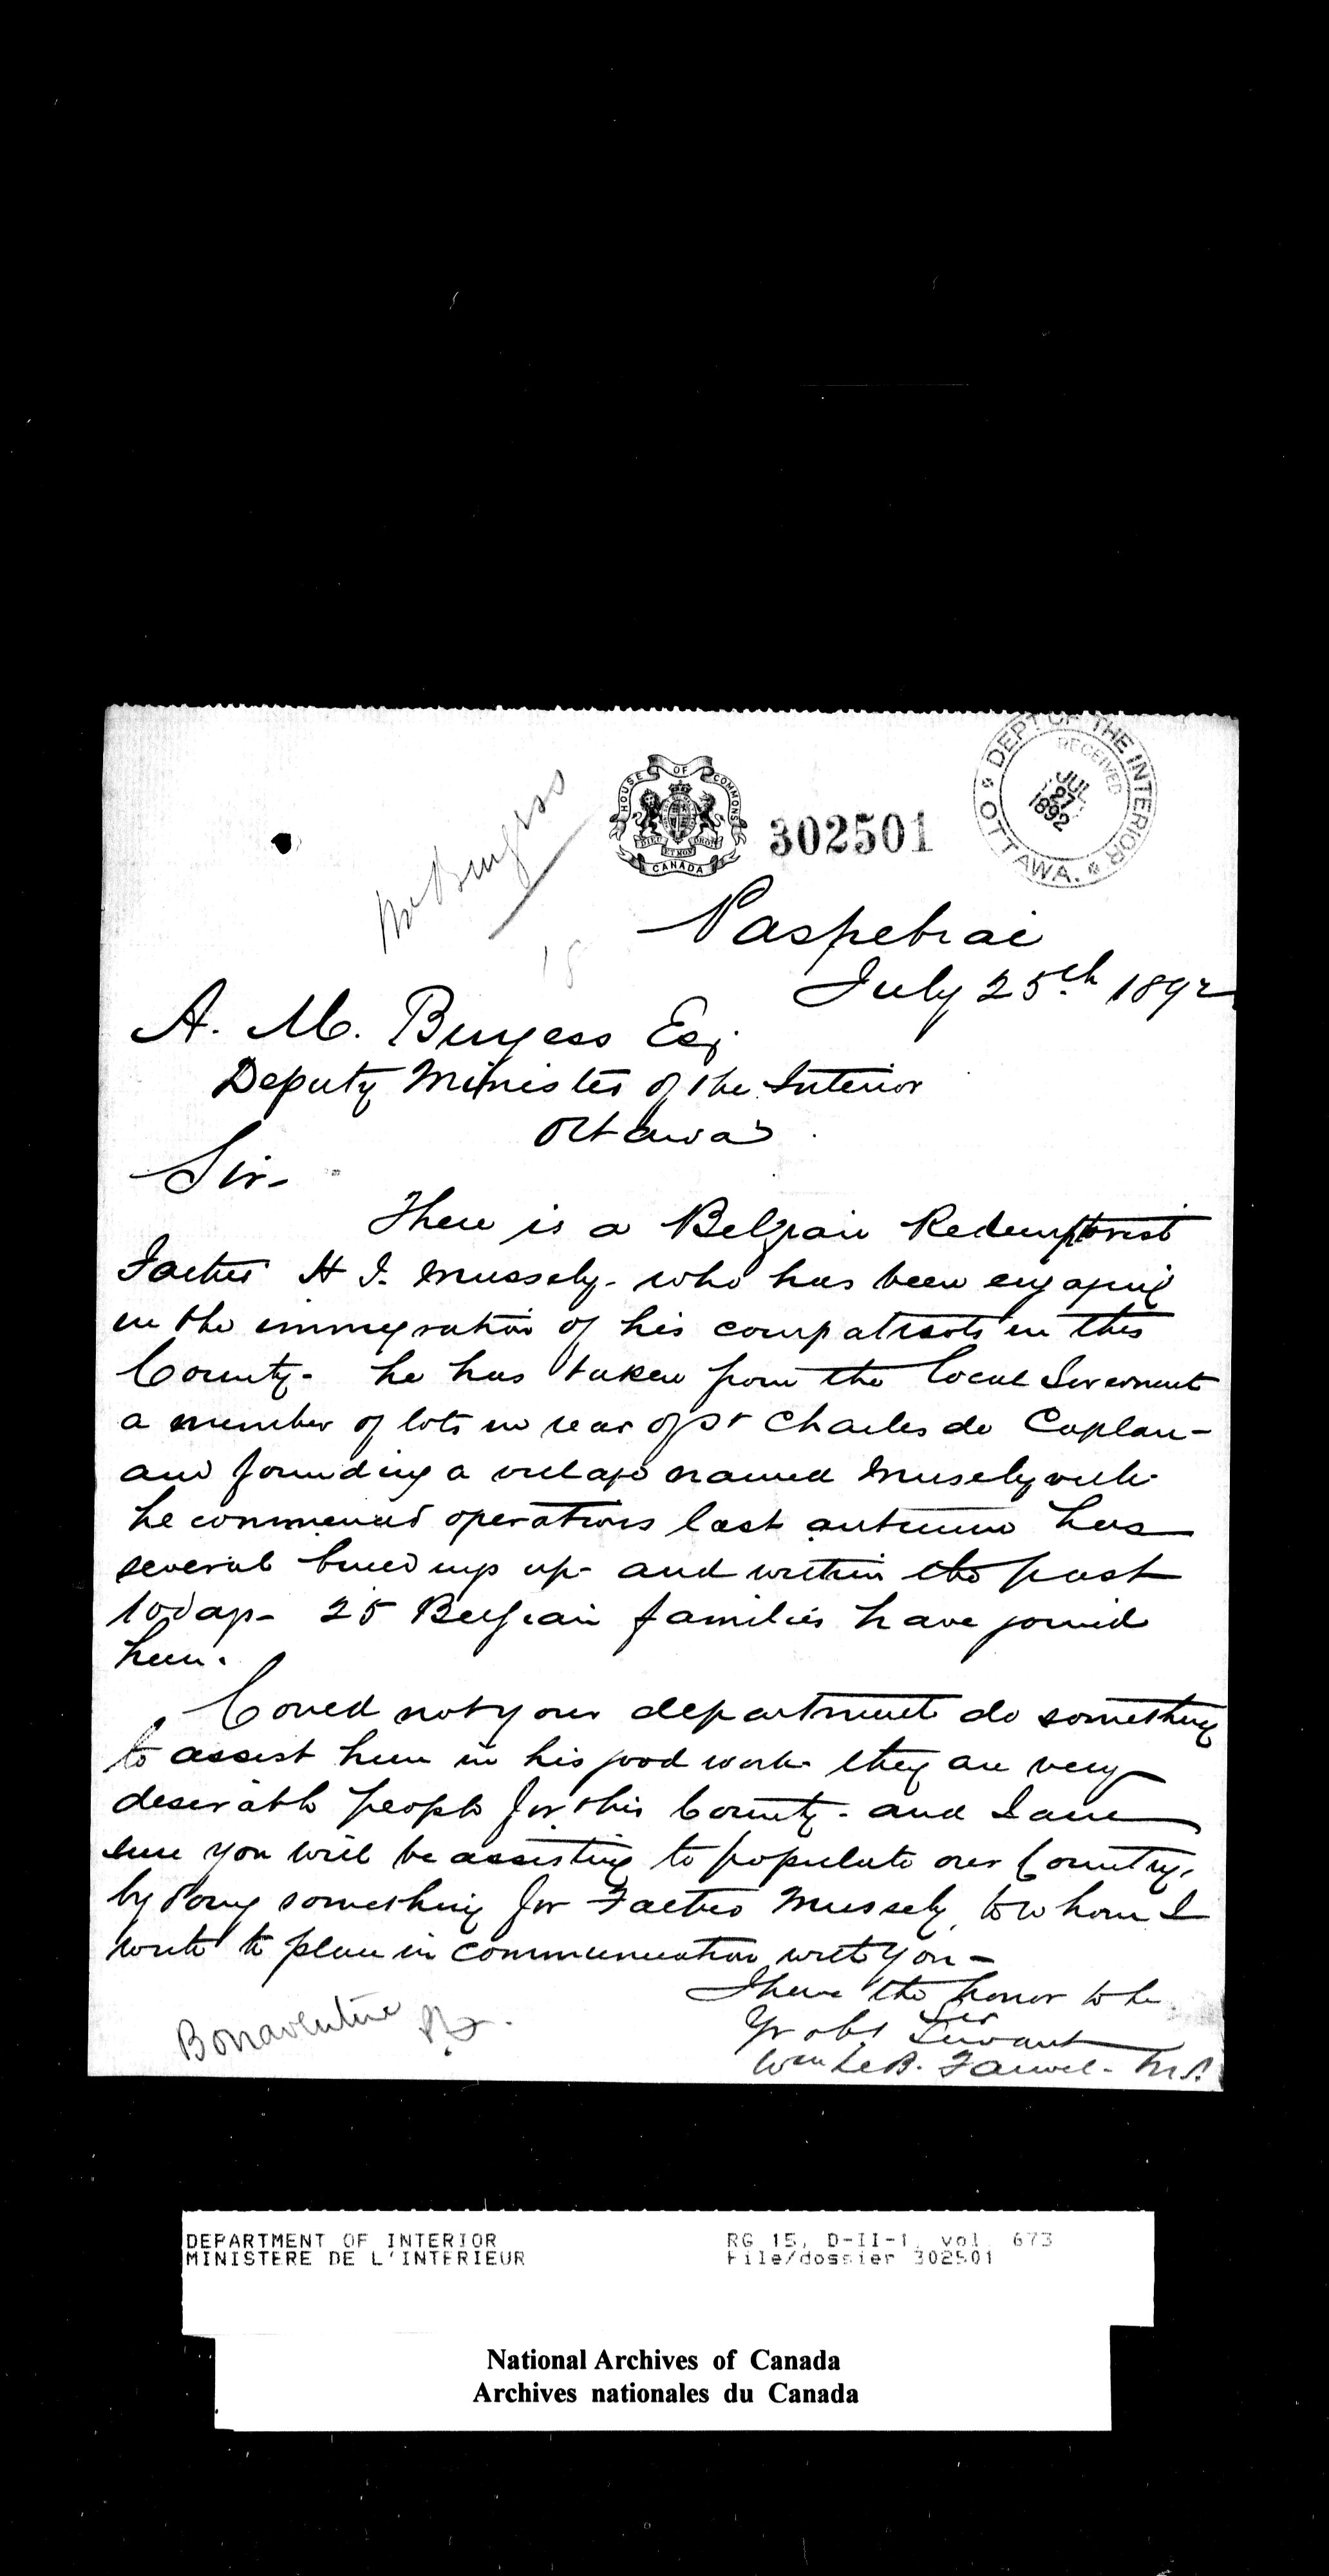 HOUSE OF COMMONS
CANADA
DIEU ET MON DROIT
302501
DEPT OF THE INTERIOR
RECEIVED
JUL 27 1892
OTTAWA.
Mr Burgess
18
Paspebiac
July 25th 1892
A. M. Burgess Esq.
Deputy Minister of the Interior
Ottawa
Sir-
There is a Belgian Redemptorist
Father H J. Mussely- who has been engaging
in the immigration of his compatriots in this
County- he has taken from the Local Government
a number of lots in rear of St Charles de Caplan-
and founding a village named Musselyville
he commenced operations last autumn has
several buildings up- and within the past
10 days- 25 Belgian families have joined
him.
Could not your department do something
to assist him in his good work they are very
desirable people for this County- and I am
sure you will be assisting to populate our Country,
by doing something for Father Mussely, to whom I
write to place in communication with you-
I have the honor to be
Sir
Yr obt Servant
Wm LeB. Fauvel- M.P.
Bonaventure
P.Q.
DEPARTMENT OF INTERIOR
MINISTERE DE L'INTERIEUR
RG 15, D-II-1, vol. 673
File/dossier 302501
National Archives of Canada
Archives nationales du Canada